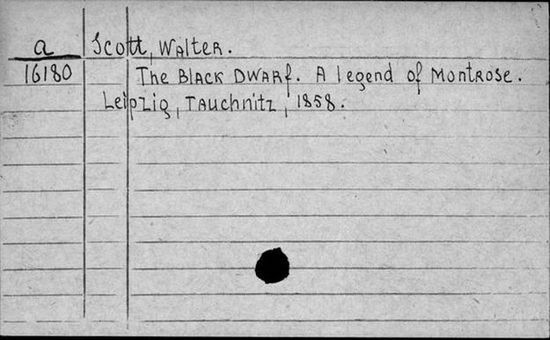 a Scott, Walter.
16180 The Black Dwarf. A legend of Montrose.
Leipzig, Tauchnitz, 1858.